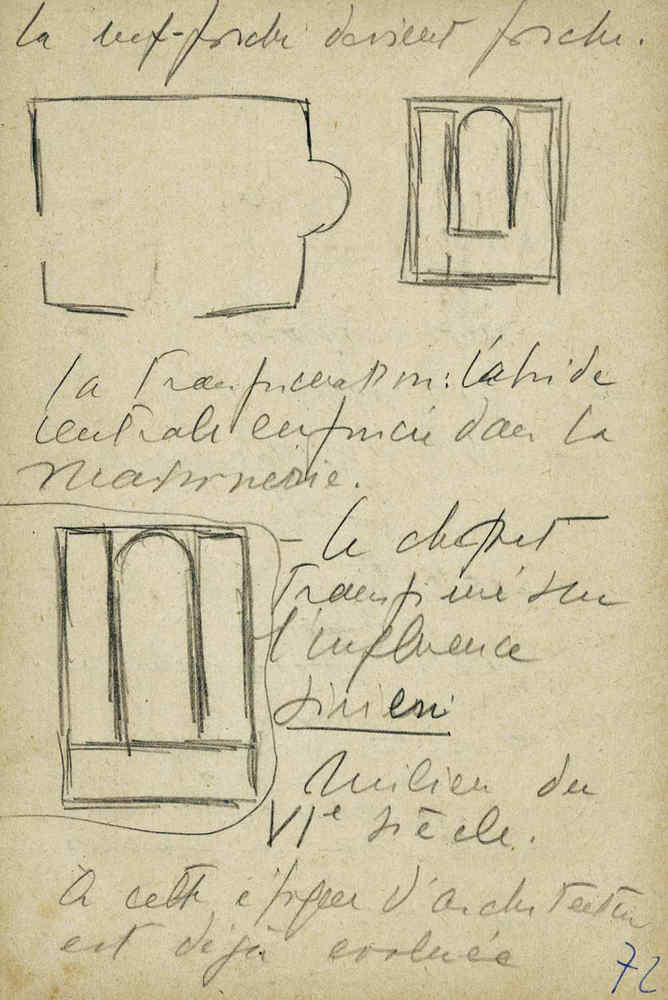 la nef-porche devient porche.
La Transformation: l'abside
centrale enfoncée dans la
maçonnerie.
- le chevet
transformé sur
l'influence
syrien
Milieu du
VIe siècle.
A cette époque d'architecture
est déjà évoluée
72